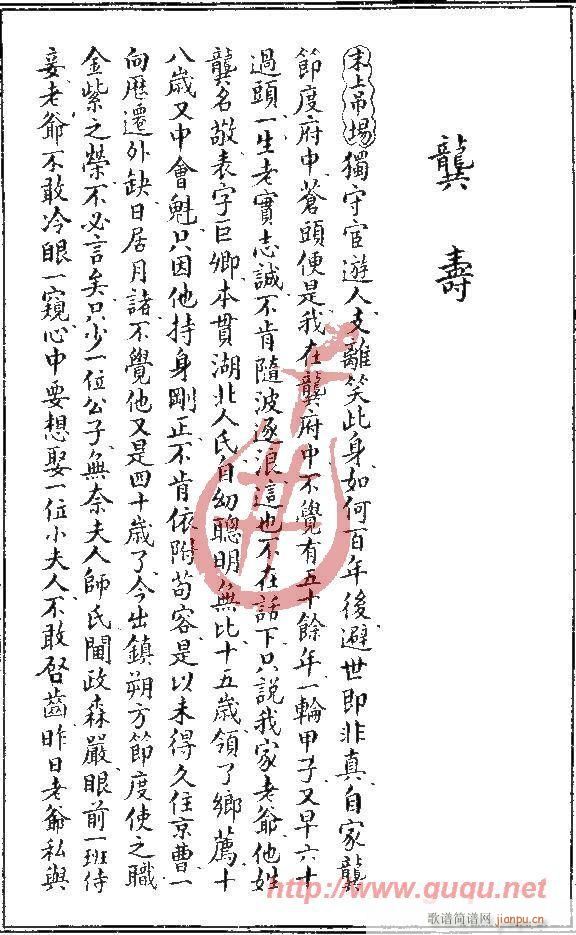 龔壽
末上弔場獨守宦遊人支離笑此身如何百年後避世即非真自家龔
節度府中蒼頭便是我在龔府中不覺有五十餘年一輪甲子又早六十
過頭一生老實志誠不肯隨波逐浪這也不在話下只說我家老爺他姓
龔名敬表字巨卿本貫湖北人氏自幼聰明無比十五歲領了鄉薦十
八歲又中會魁只因他持身剛正不肯依附苟容是以未得久住京曹一
向歷遷外缺日居月諸不覺他又是四十歲了今出鎮朔方節度使之職
金紫之榮不必言矣只少一位公子無奈夫人師氏閫政森嚴眼前一班侍
妾老爺不敢冷眼一窺心中要想娶一位小夫人不敢啓齒昨日老爺私與
http://www.ququ.net
歌谱简谱网
jianpu.cn